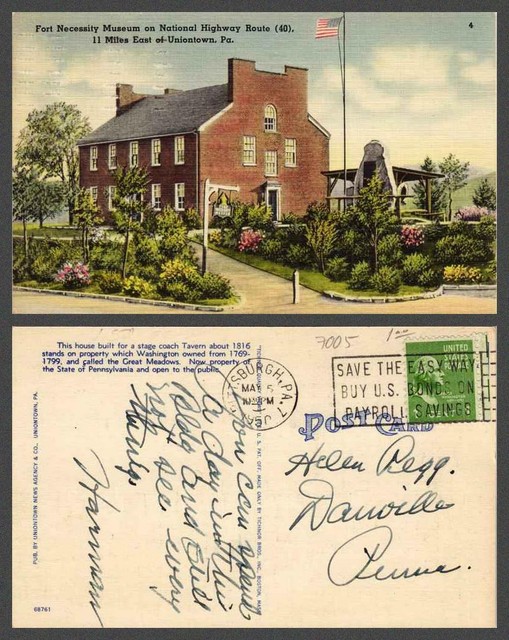 Fort Necessity Museum on National Highway Route (40),
11 Miles East of Uniontown, Pa.
4
This house built for a stage coach Tavern about 1816
stands on property which Washington owned from 1769-
1799, and called the Great Meadows. Now property of
the State of Pennsylvania and open to the public.
7005
1 00
PITTSBURGH, PA. 7
MAY 5
PM
195
SAVE THE EASY WAY
BUY U.S. BONDS ON
PAYROLL SAVINGS
UNITED
STATES
POST CARD
Helen Pegg.
Danville
Penna.
You can spend
a day in this
Bldg and and
not see every
things
Harman
PUB. BY UNIONTOWN NEWS AGENCY & CO., UNIONTOWN, PA.
U. S. PAT. OFF. MADE ONLY BY TICHNOR BROS., INC., BOSTON, MASS.
68761